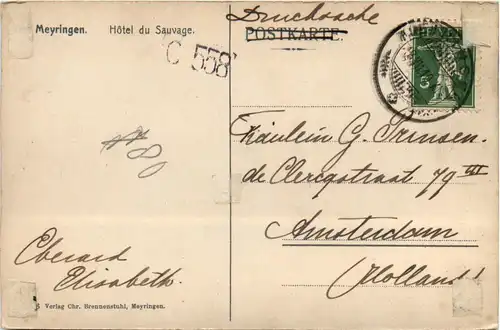 Meyringen. Hôtel du Sauvage.
Drucksache
POSTKARTE.
C 558
5
Fräulein G. Prinsen.
de Clercqstraat 79 III
Amsterdam
(Holland)
Eberard
Elisabeth.
Verlag Chr. Brennenstuhl, Meyringen.